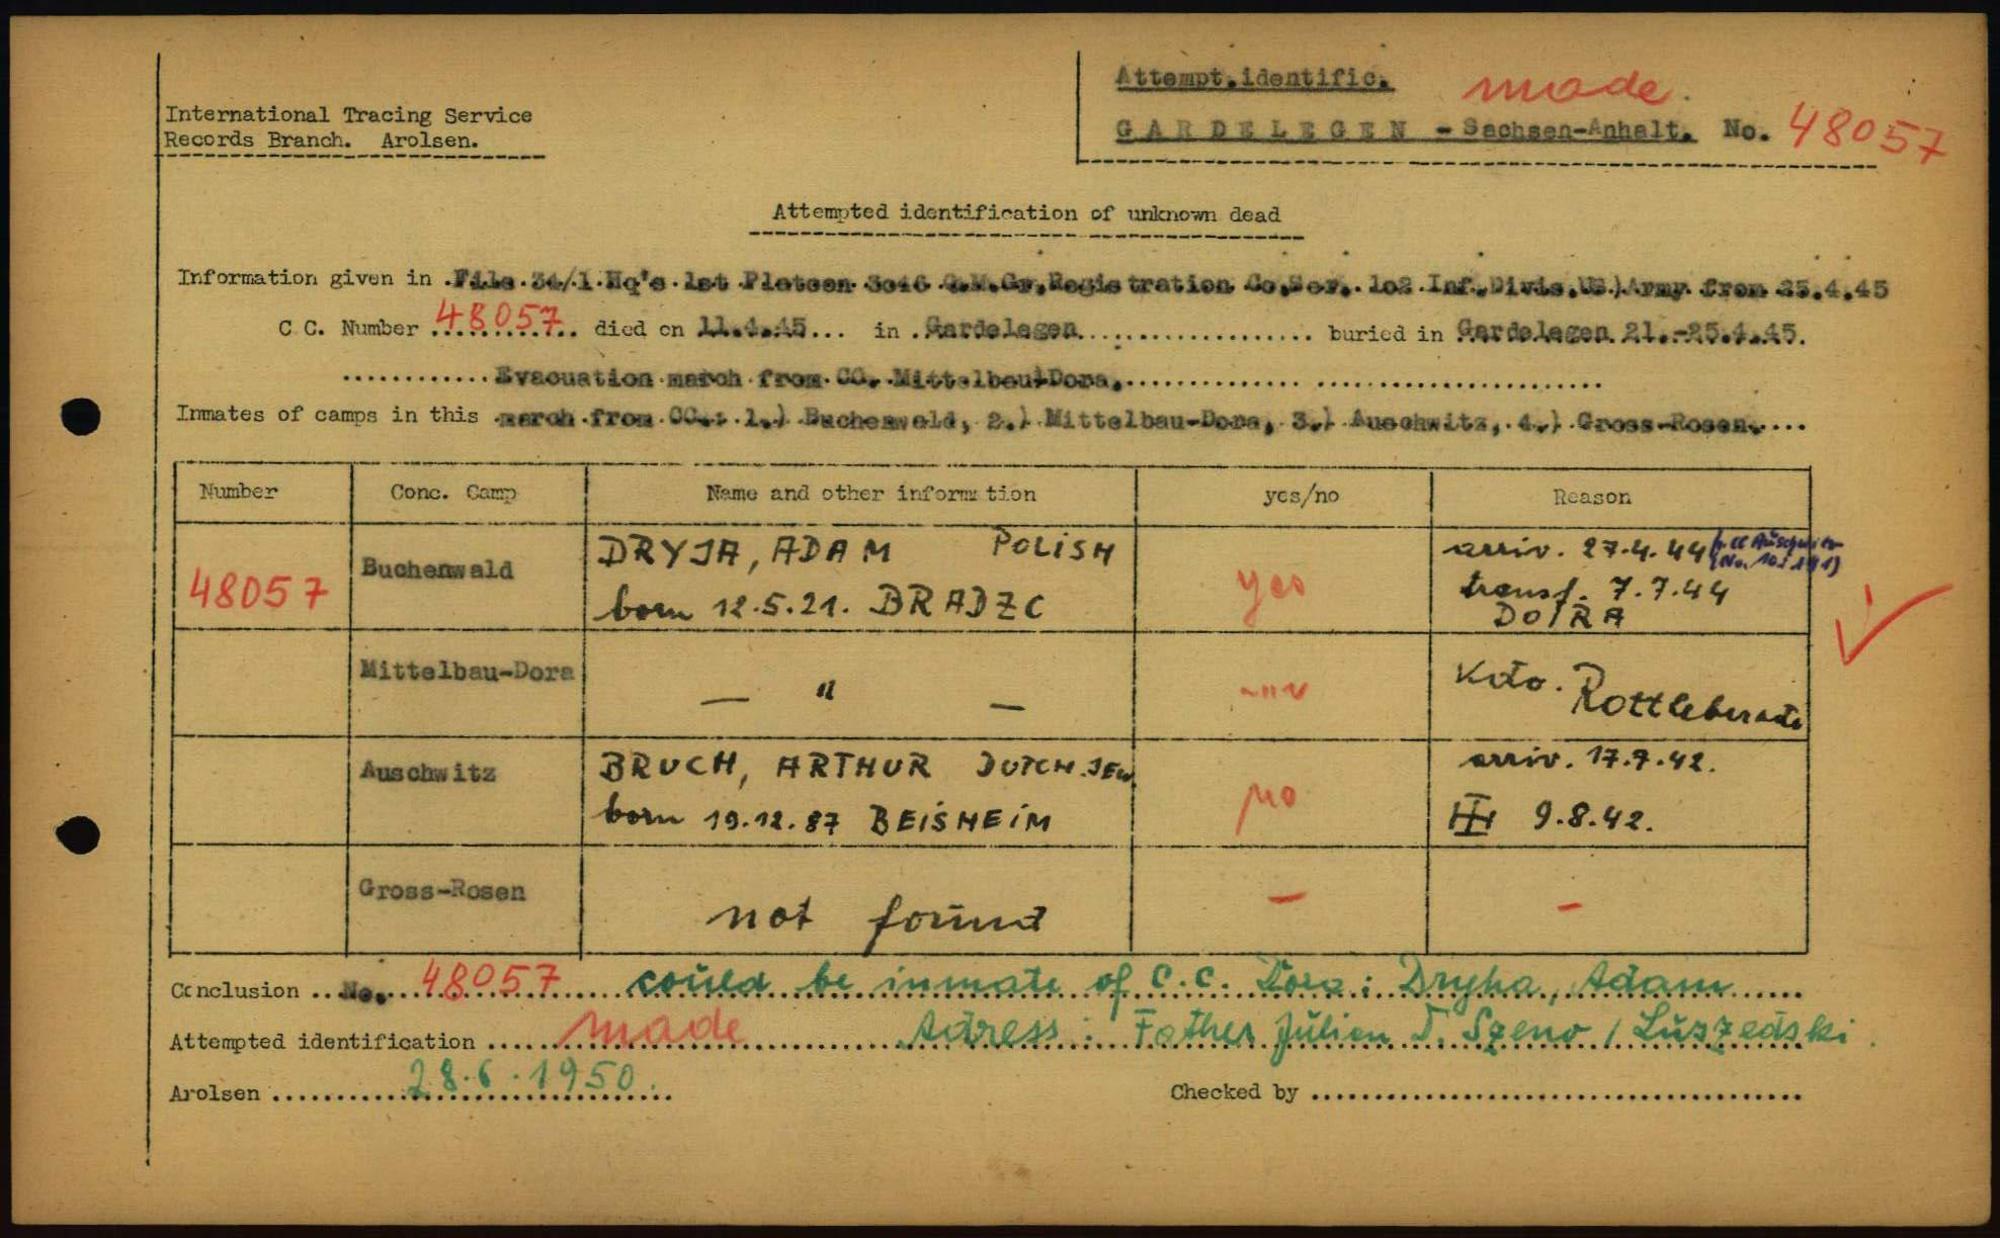 Attempt.identific. made.
International Tracing Service
Records Branch. Arolsen.
GARDELEGEN - Sachsen-Anhalt. No. 48057
Attempted identification of unknown dead
Information given in .File.34/1.Hq's.1st.Platoon.3046.Q.M.Gr.Registration Co.Ser..102.Inf.Divis.US.)Army.from 25.4.45
C C. Number 48057 died on 11.4.45... in .Gardelegen.................... buried in Gardelegen.21.-25.4.45.
............Evacuation.march.from.CC..Mittelbau-Dora,............................
Inmates of camps in this .march.from.CC.:.1.).Buchenwald, 2.).Mittelbau-Dora, 3.).Auschwitz,.4.).Gross-Rosen....
Number Conc. Camp Name and other information yes/no Reason
48057 Buchenwald DRYJA, ADAM POLISH yes arriv. 27.4.44
born 12.5.21. BRADZC transf. 7.7.44
DO/RA
Mittelbau-Dora — " — -"- Kdo. Rottleberode
Auschwitz BRUCH, ARTHUR DUTCH.JEW no arriv. 17.7.42.
born 19.12.87 BEISHEIM 9.8.42.
Gross-Rosen not found — —
Conclusion ...No. 48057 could be inmate of C.C. Dora: Dryha, Adam
Attempted identification made Adress: Father Julian T. Szeno / Luszedski.
Arolsen 28.6.1950. Checked by ........................................